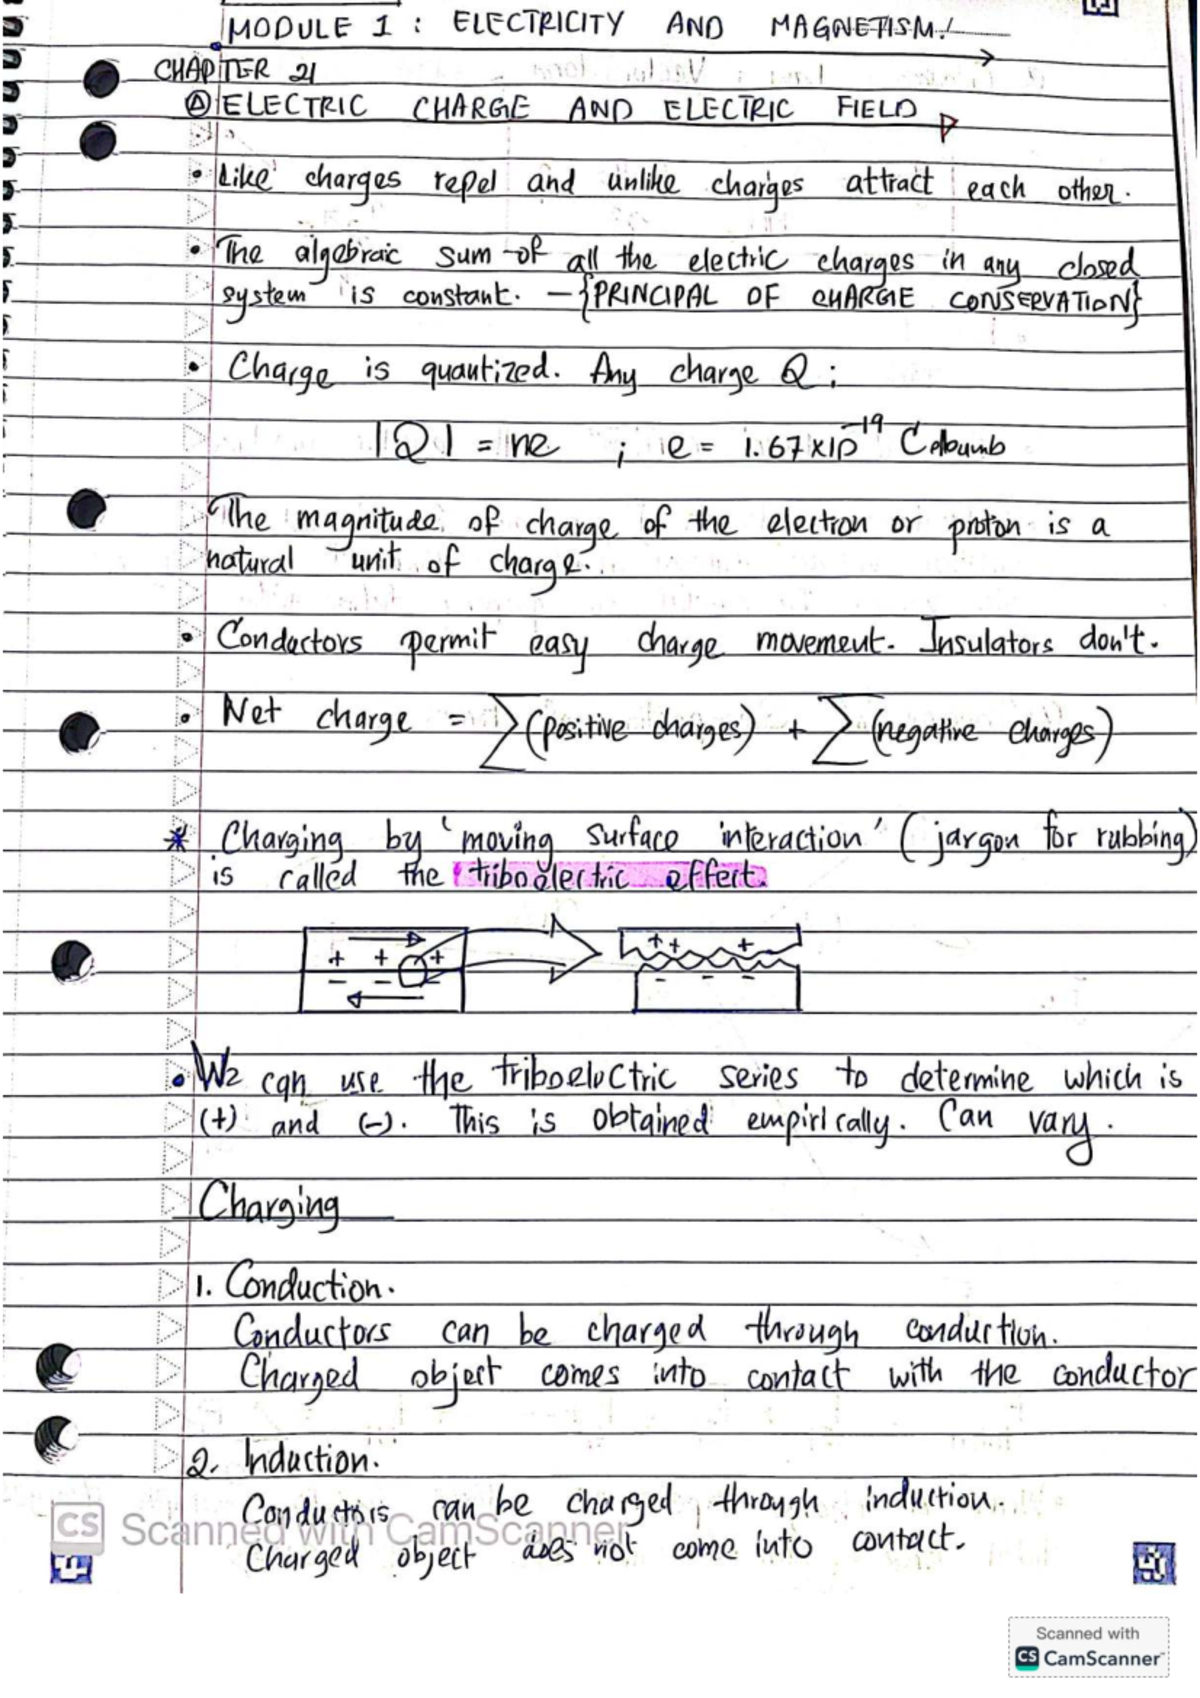 MODULE 1 : ELECTRICITY AND MAGNETISM!
CHAPTER 21
Ⓐ ELECTRIC CHARGE AND ELECTRIC FIELD
• Like charges repel and unlike charges attract each other.
• The algebraic sum of all the electric charges in any closed
system is constant. — {PRINCIPAL OF CHARGE CONSERVATION}
• Charge is quantized. Any charge Q ;
|Q| = ne ; e = 1.67 x 10⁻¹⁹ Colbumb
The magnitude of charge of the electron or proton is a
natural unit of charge.
• Conductors permit easy charge movement. Insulators don't.
• Net charge = ∑(positive charges) + ∑(negative charges)
* Charging by 'moving surface interaction' (jargon for rubbing)
is called the triboelectric effect.
+ + + + + +
- - - - - -
• We can use the triboeluctric series to determine which is
(+) and (-). This is obtained empirically. Can vary.
Charging
1. Conduction.
Conductors can be charged through conduction.
Charged object comes into contact with the conductor
2. Induction.
Conductors can be charged through induction.
Charged object does not come into contact.
CS Scanned with CamScanner
Scanned with
CS CamScanner